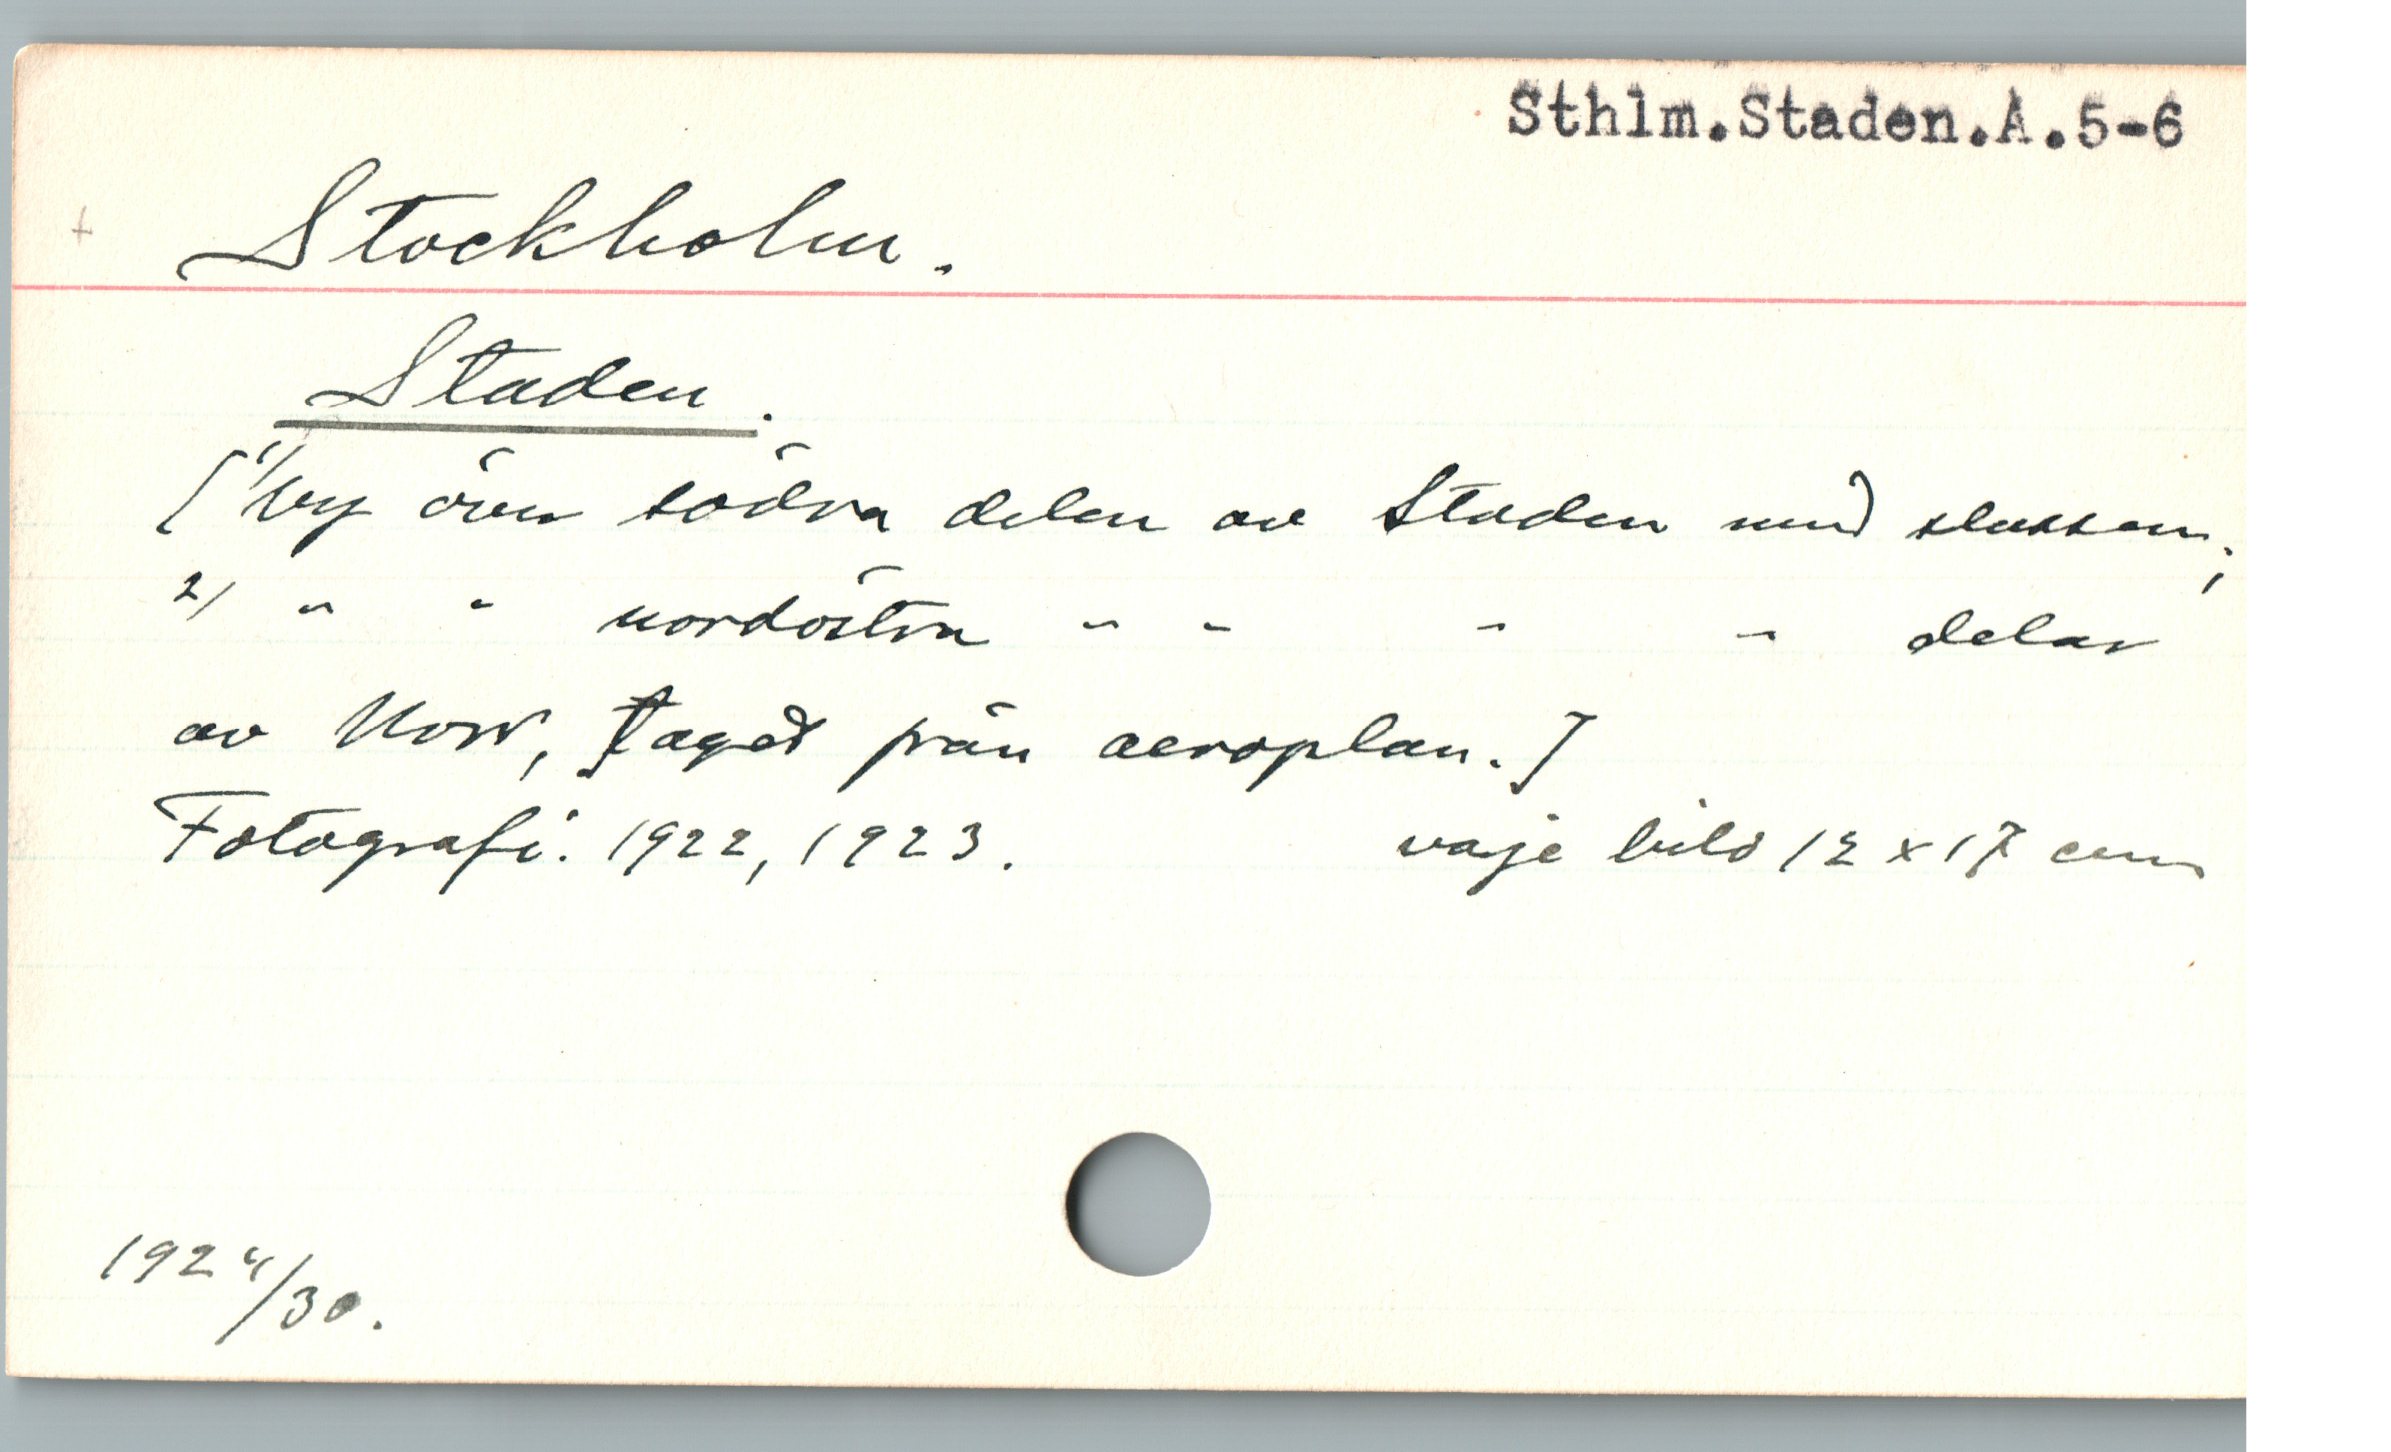 Sthlm.Staden.A.5-6
+ Stockholm.
Staden.
[1/ Vy över södra delen av Staden med slussen;
2/ " " nordöstra " " " " delar
av Norr, taget från aeroplan.]
Fotografi. 1922, 1923. varje bild 12 x 17 cm
1924/30.